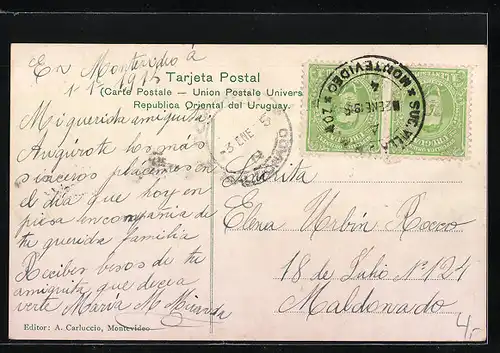 En Montevideo á
1-1-1913
Tarjeta Postal
(Carte Postale — Union Postale Univers
Republica Oriental del Uruguay.
Mi querida amiguita:
Augúrote los más
sinceros placemes en
el dia que hoy em
pieza en compania de
tu querida familia
Recibes besos de tu
amiguita que desea
verte María M. Miranda
Editor: A. Carluccio, Montevideo
Señorita
Elena Urbín Rocco
18 de Julio Nº 124
Maldonado
MONTEVIDEO
SUC. VILLA
2 ENE 19
3 ENE
MALDONADO
4,-